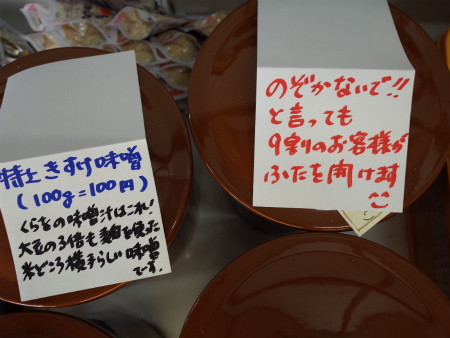 特上きすけ味噌
(100g=100円)
くらをの味噌汁はこれ!
大豆の3倍も麹を使った
米どころ横手らしい味噌
です。
のぞかないで!!
と言っても
9割のお客様が
ふたを開けます